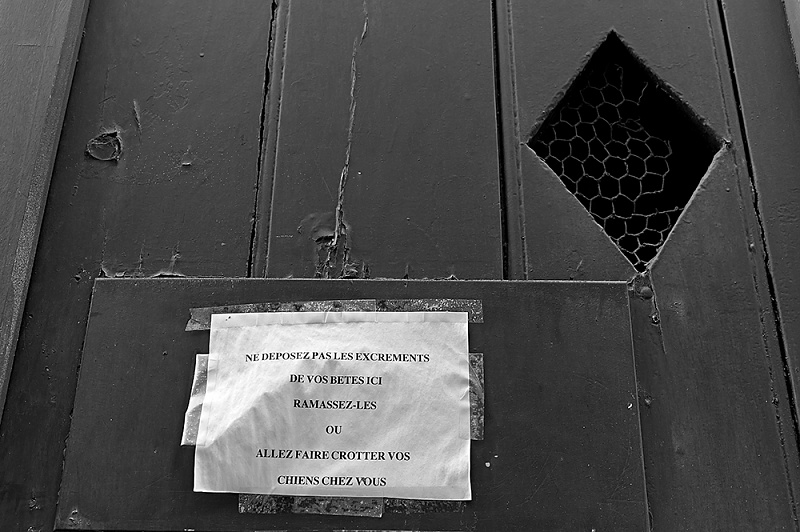 NE DEPOSEZ PAS LES EXCREMENTS
DE VOS BETES ICI
RAMASSEZ-LES
OU
ALLEZ FAIRE CROTTER VOS
CHIENS CHEZ VOUS